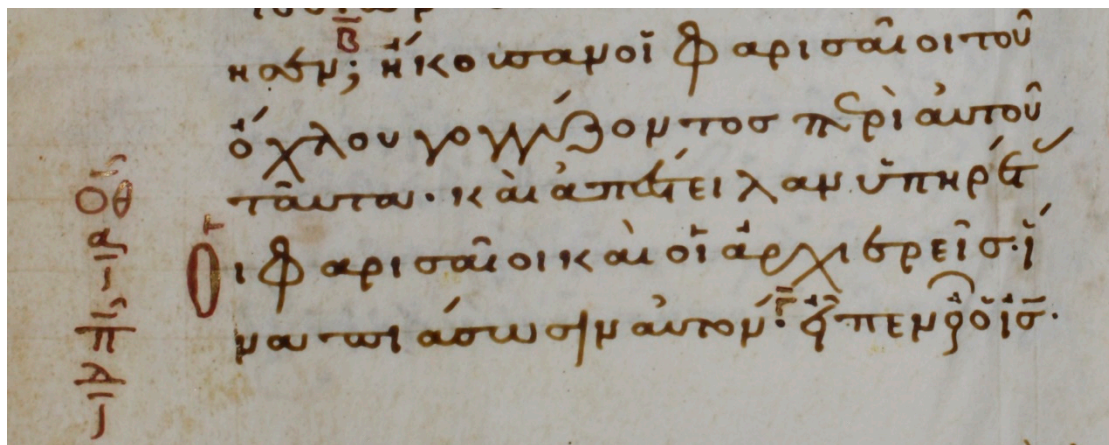 ησεν; ἤκουσαν οἱ φαρισαῖοι τοῦ
ὄχλου γογγύζοντος περὶ αὐτοῦ
ταῦτα· καὶ ἀπέστειλαν ὑπηρέτ
οι φαρισαῖοι καὶ οἱ ἀρχιερεῖς· ἵ
να πιάσωσιν αὐτόν· εἶπεν οὖν ὁ ις·